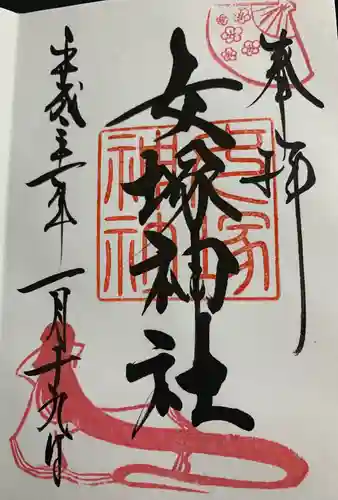 奉拝
女塚神社
平成三十一年一月十九日
女塚神社